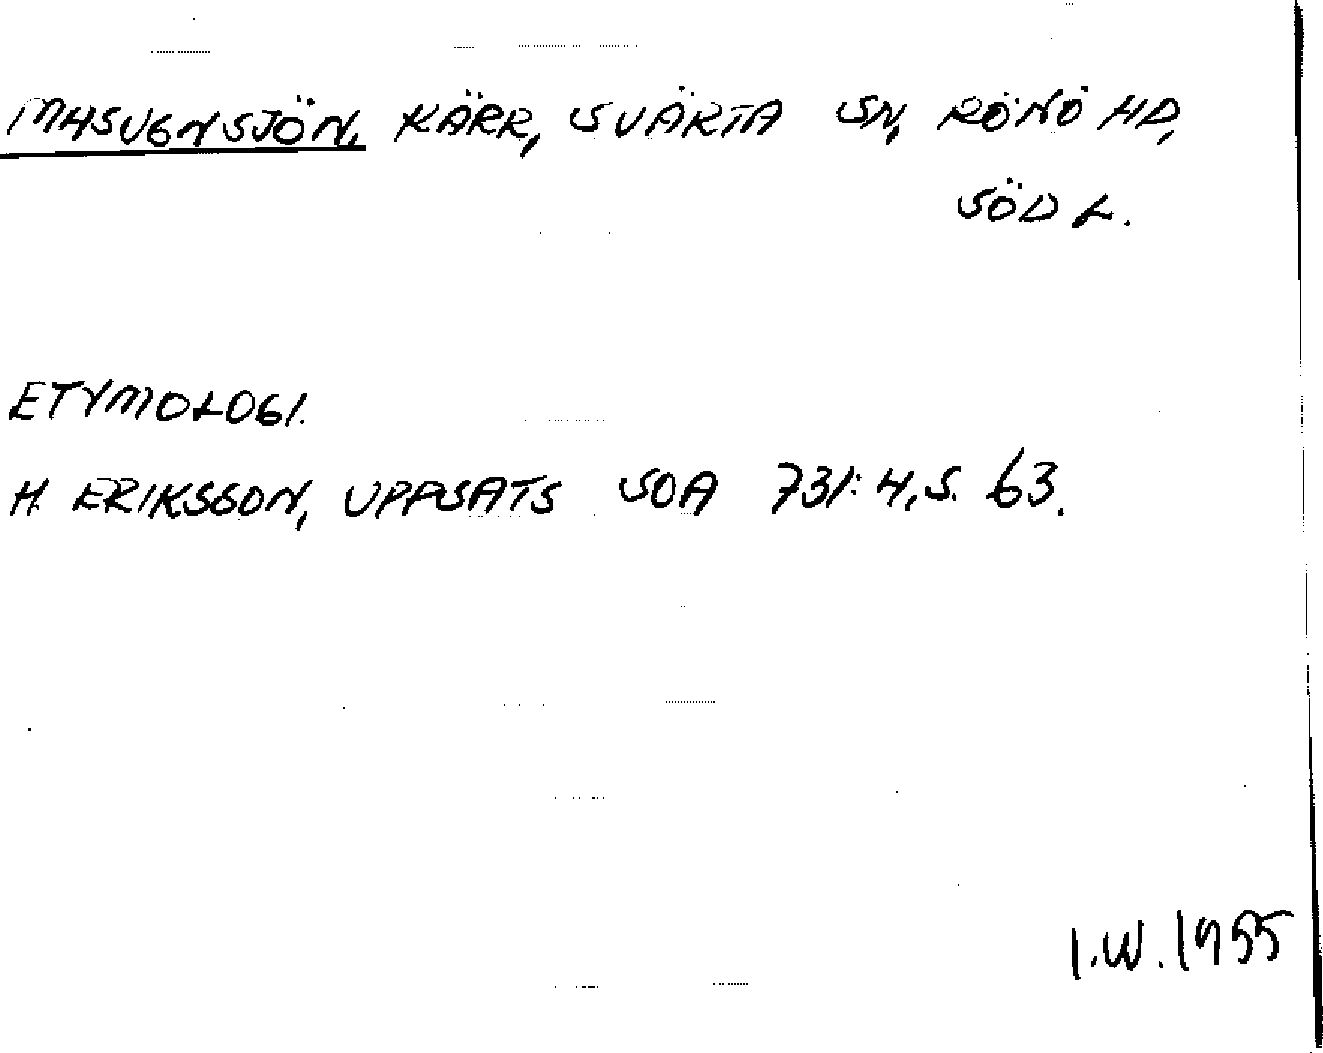 MASUGNSJÖN, KÄRR, SVÄRTA SN, RÖNÖ HD,
SÖDL.
ETYMOLOGI.
H. ERIKSSON, UPPSATS SOA 731:4, S. 63.
I.W. 1955